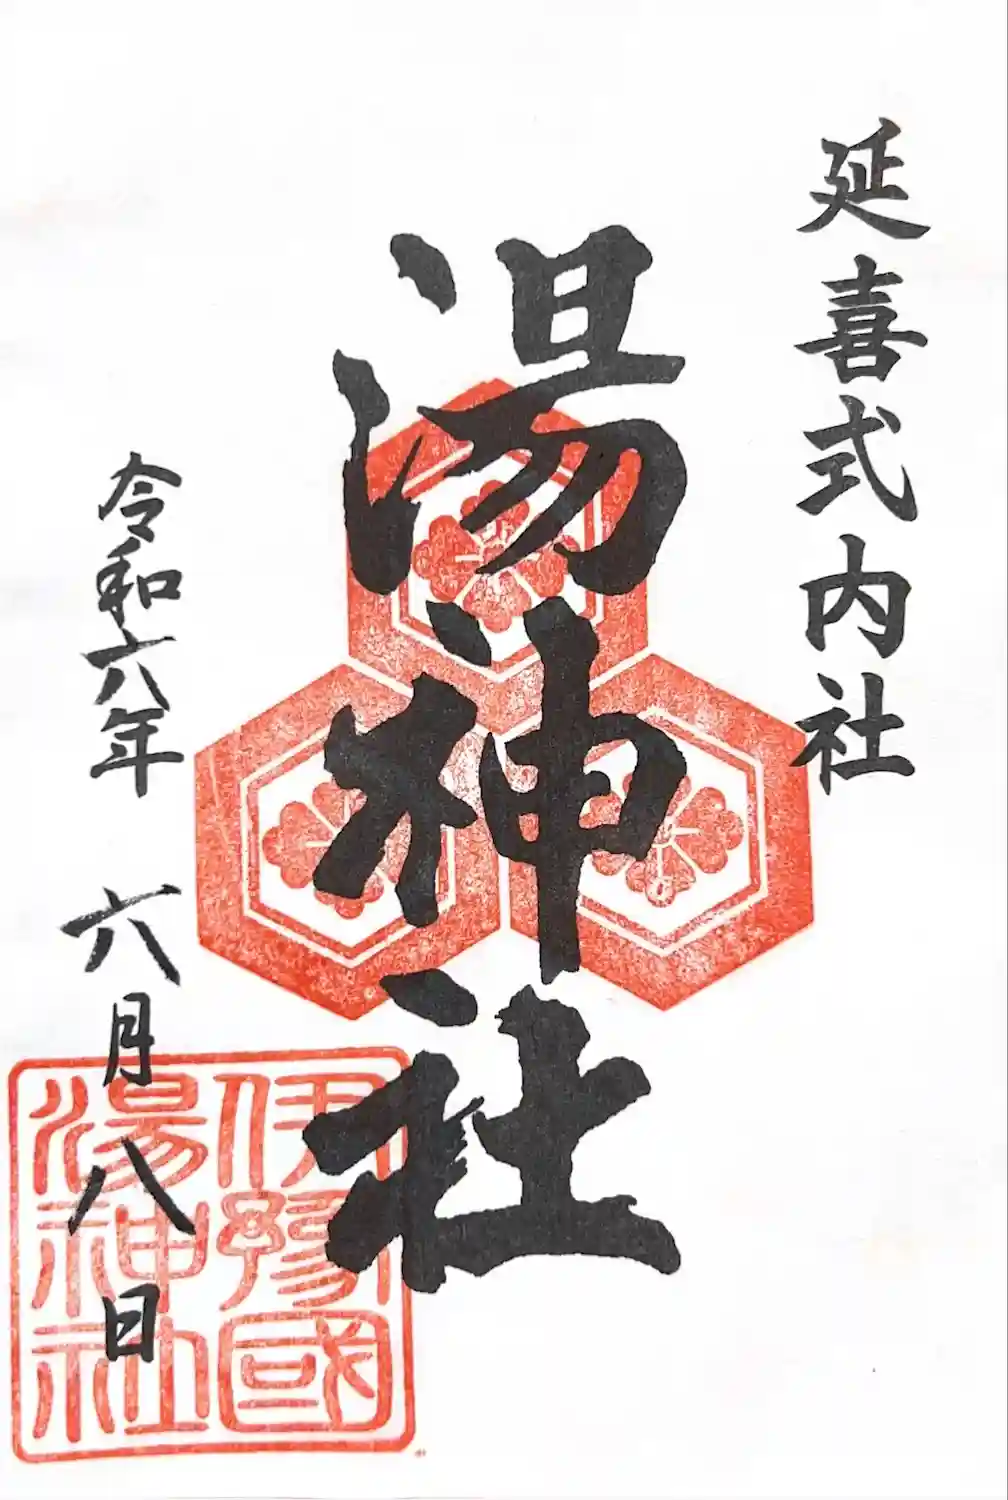 延喜式内社
湯神社
令和六年 六月八日
伊豫國
湯神社